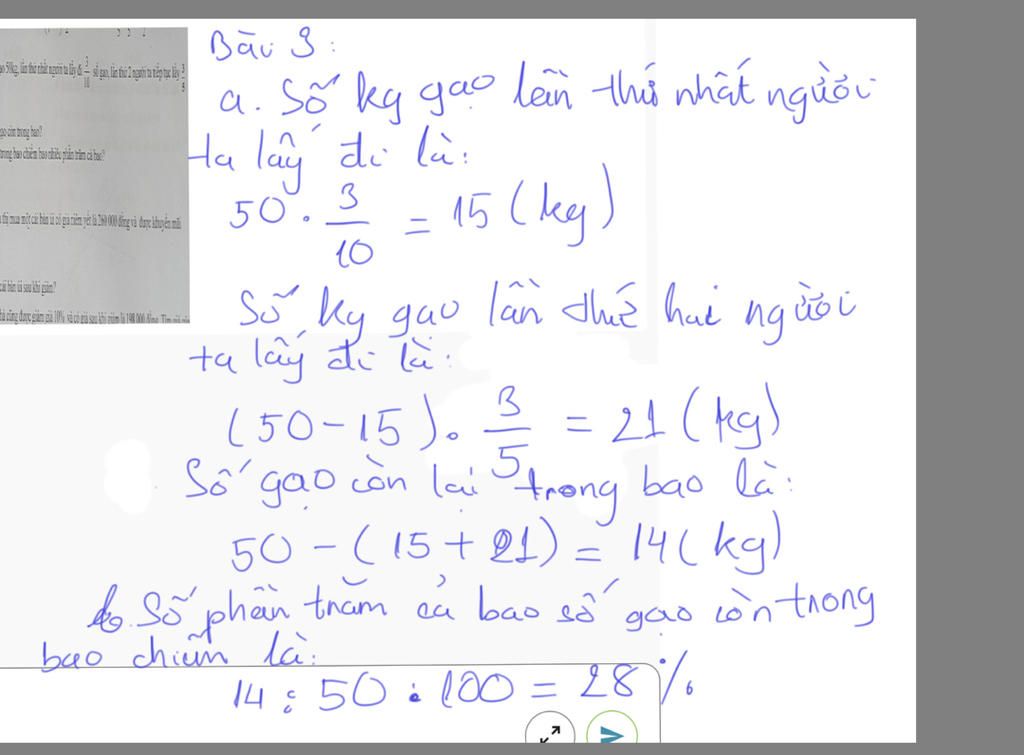 ao 50kg, lần thứ nhất người ta lấy đi 3/10 số gạo, lần thứ 2 người ta tiếp tục lấy 3/5
gạo còn trong bao?
trong bao chiếm bao nhiêu phần trăm cả bao?
thị mua một cái bàn ủi có giá niêm yết là 260 000 đồng và được khuyến mãi
cái bàn ủi sau khi giảm?
cũng được giảm giá 10% và có giá sau khi giảm là 198 000 đồng. Tìm giá
Bài 3:
a. Số kg gạo lần thứ nhất người
ta lấy đi là:
50 . 3/10 = 15 (kg)
Số kg gạo lần thứ hai người
ta lấy đi là:
(50 - 15) . 3/5 = 21 (kg)
Số gạo còn lại trong bao là:
50 - (15 + 21) = 14 (kg)
b. Số phần trăm cả bao số gạo còn trong
bao chiếm là:
14 : 50 . 100 = 28 %